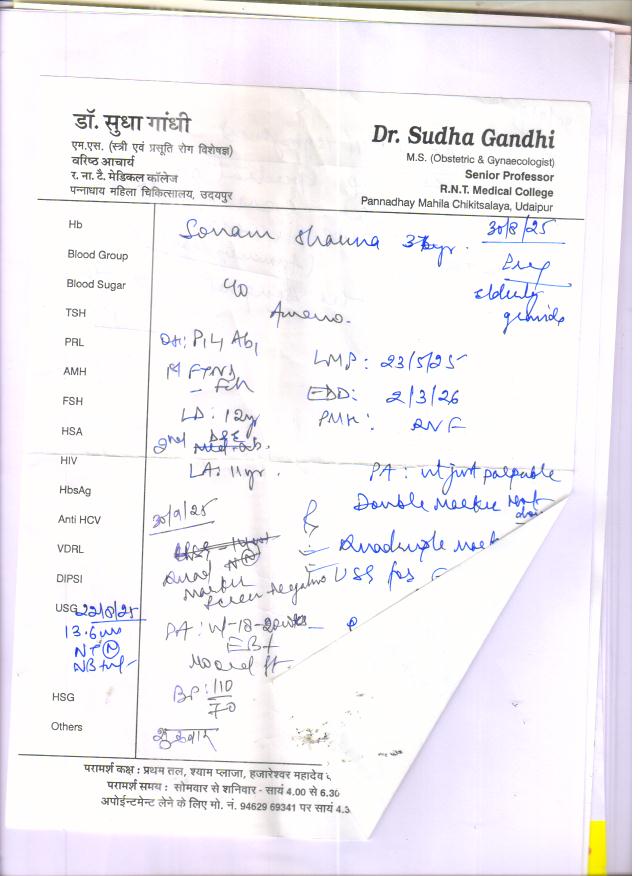 डॉ. सुधा गांधी
एम.एस. (स्त्री एवं प्रसूति रोग विशेषज्ञ)
वरिष्ठ आचार्य
र. ना. टै. मेडिकल कॉलेज
पन्नाधाय महिला चिकित्सालय, उदयपुर
Dr. Sudha Gandhi
M.S. (Obstetric & Gynaecologist)
Senior Professor
R.N.T. Medical College
Pannadhay Mahila Chikitsalaya, Udaipur
Hb
Blood Group
Blood Sugar
TSH
PRL
AMH
FSH
HSA
HIV
HbsAg
Anti HCV
VDRL
DIPSI
USG 22/8/25
13.6
NT N
NB
HSG
Others
Sonam Sharma
30/8/25
elderly
gravida
Ameno.
OH: P1L1 Ab1
LMP: 23/5/25
FTND
EDD: 2/3/26
LD: 12yr
PMH:
2nd
LA: 11yr.
PA: ut just palpable
30/9/25
Double Marker
Quadruple
Quad N
Marker
Screen negative
USG for
PA: 18-20wks
BP: 110
70
शुक्रवार
परामर्श कक्ष : प्रथम तल, श्याम प्लाजा, हजारेश्वर महादेव
परामर्श समय : सोमवार से शनिवार - सायं 4.00 से 6.30
अपोईन्टमेन्ट लेने के लिए मो. नं. 94629 69341 पर सायं 4.3